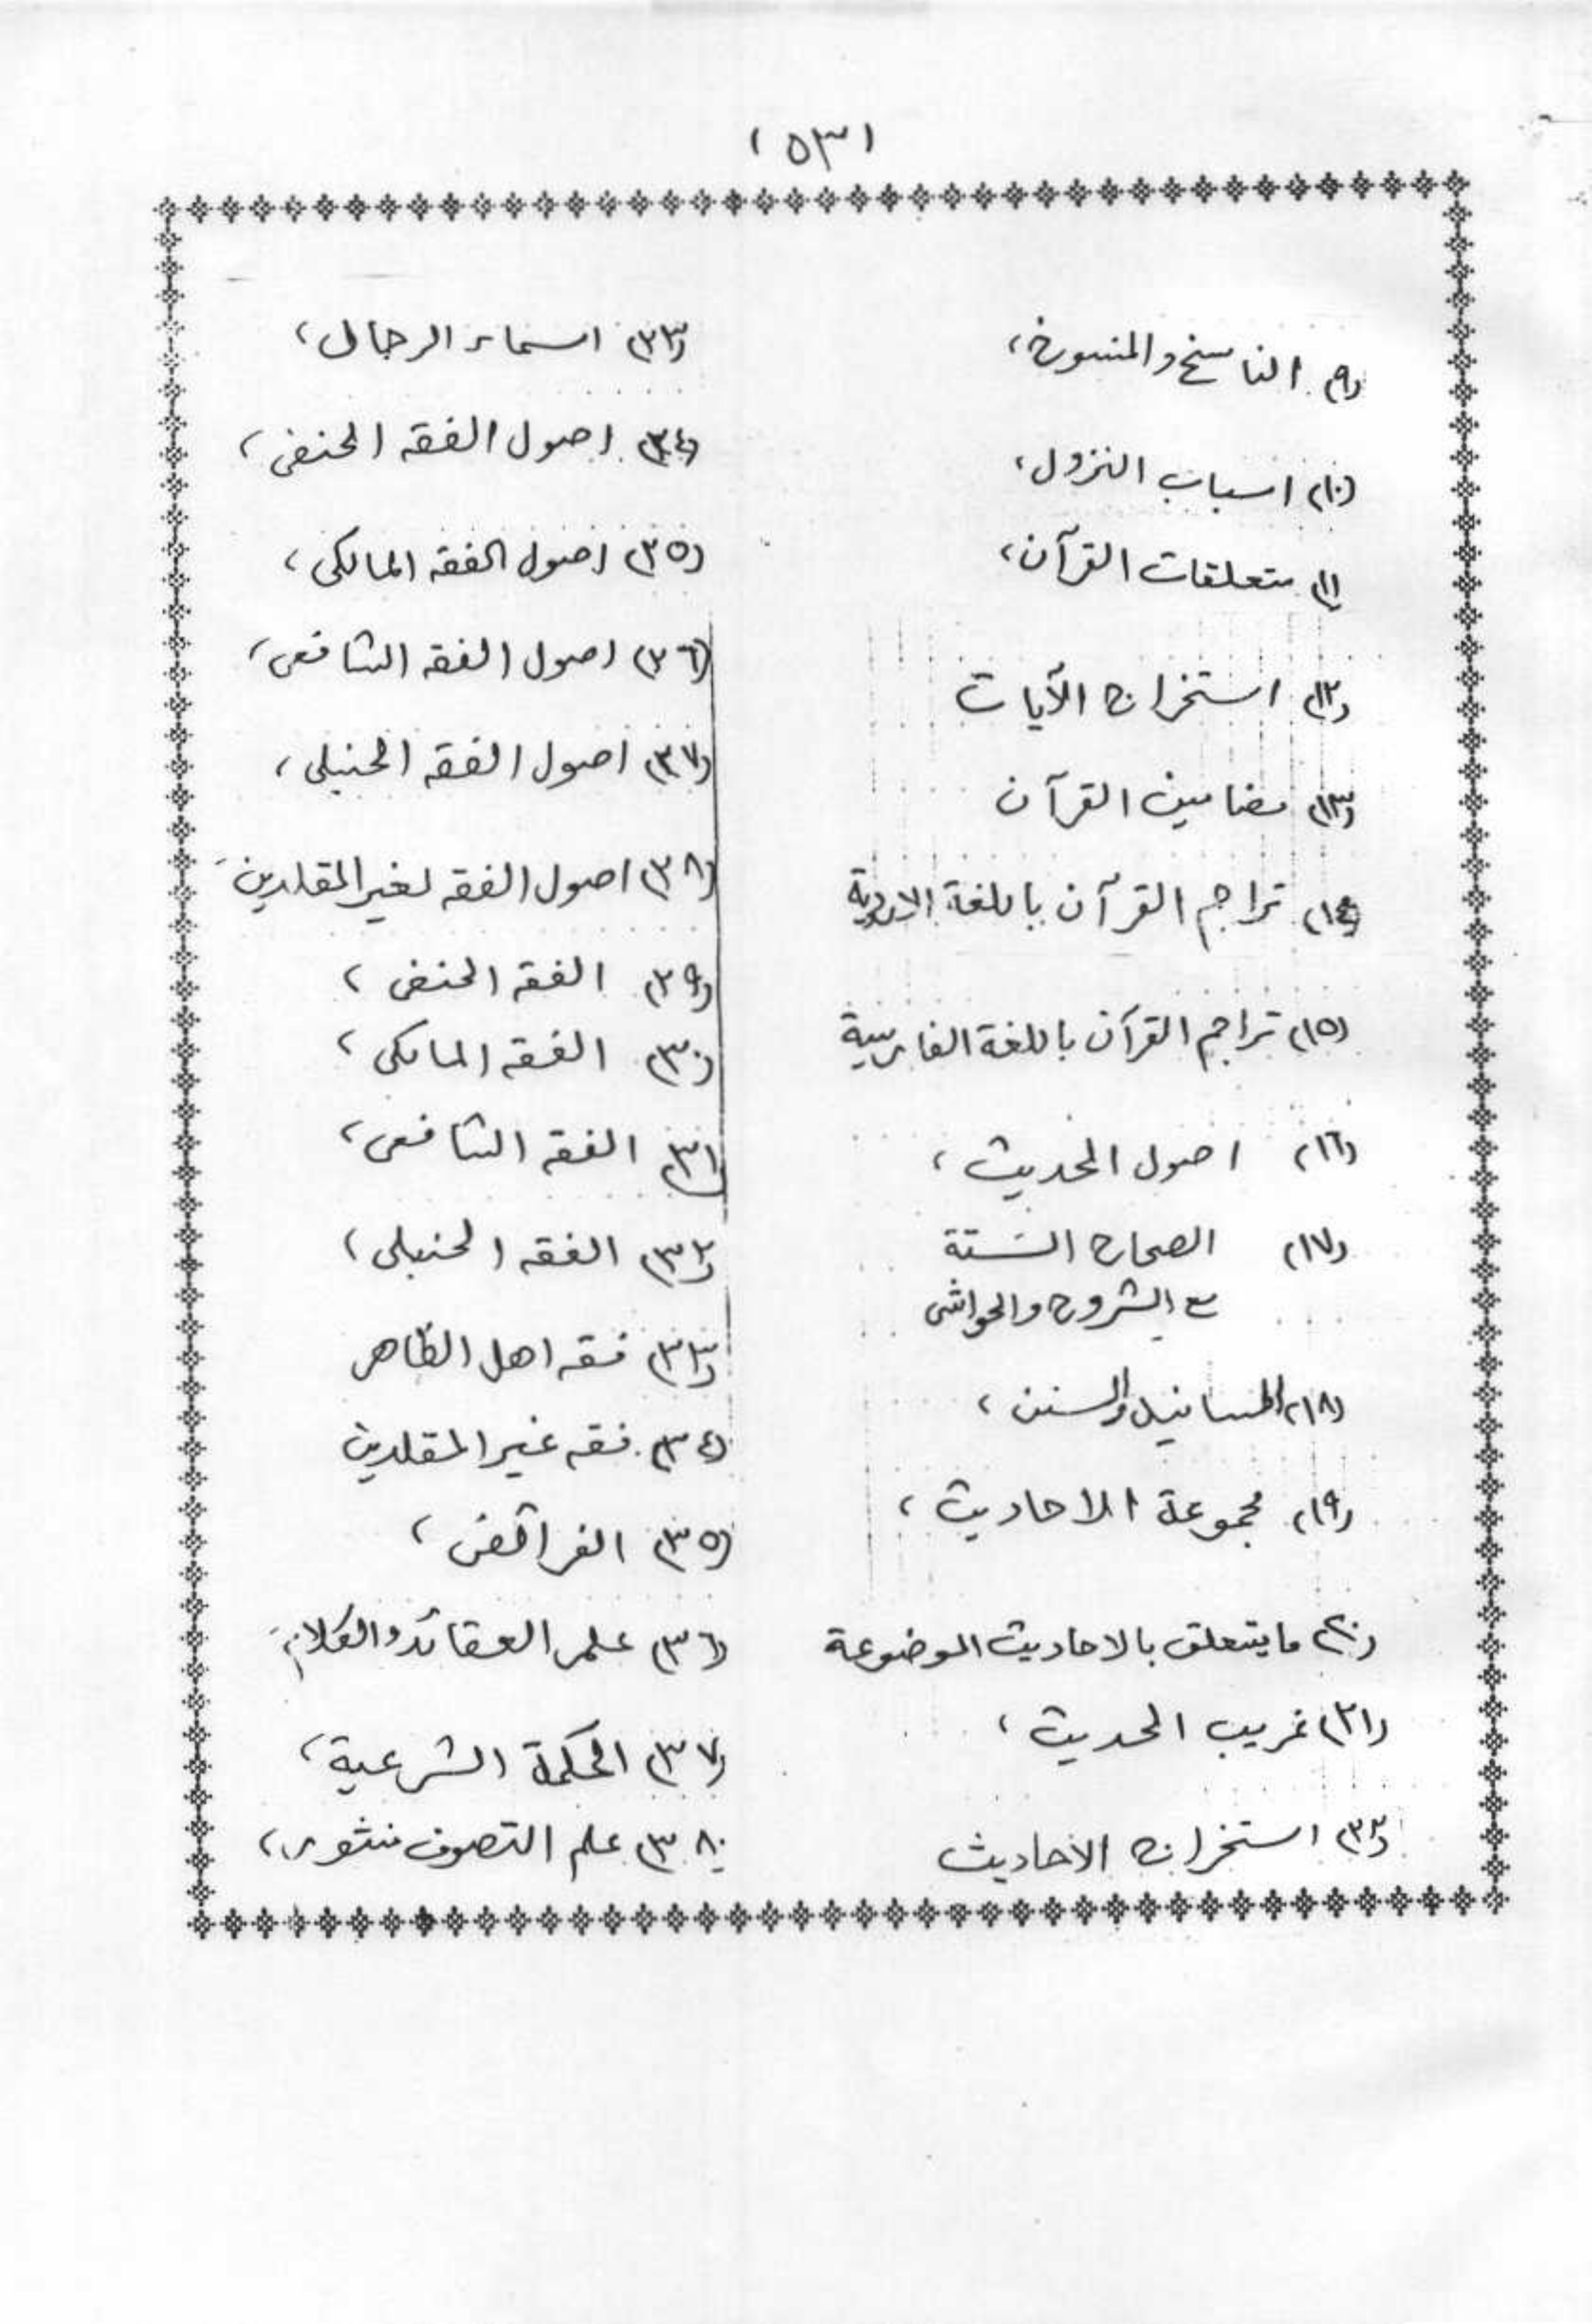 (٥٣)
(٩) الناسخ والمنسوخ،
(١٠) اسباب النزول،
(١١) متعلقات القرآن،
(١٢) استخراج الآيات
(١٣) مضامين القرآن
(١٤) تراجم القرآن باللغة الاردوية
(١٥) تراجم القرآن باللغة الفارسية
(١٦) اصول الحديث،
(١٧) الصحاح الستة
مع الشروح والحواشى
(١٨) المسانيد والسنن،
(١٩) مجموعة الاحاديث،
(٢٠) ما يتعلق بالاحاديث الموضوعة
(٢١) غريب الحديث،
(٢٢) استخراج الاحاديث
(٢٣) اسماء الرجال،
(٢٤) اصول الفقه الحنفى،
(٢٥) اصول الفقه المالكى،
(٢٦) اصول الفقه الشافعى،
(٢٧) اصول الفقه الحنبلى،
(٢٨) اصول الفقه لغير المقلدين
(٢٩) الفقه الحنفى،
(٣٠) الفقه المالكى،
(٣١) الفقه الشافعى،
(٣٢) الفقه الحنبلى،
(٣٣) فقه اهل الظاهر
(٣٤) فقه غير المقلدين
(٣٥) الفرائض،
(٣٦) علم العقائد والكلام
(٣٧) الحكمة الشرعية،
(٣٨) علم التصوف منثور،